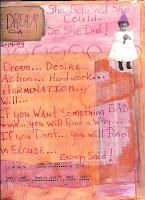 DREAM
She Believed She
Could...
So She Did!
Dream... Desire...
Action... Hard work...
Determination...
Will...
If you Want Something BAD
enough... you will find a WAY...
If you Don't... you will Find
an Excuse...
Enough Said!